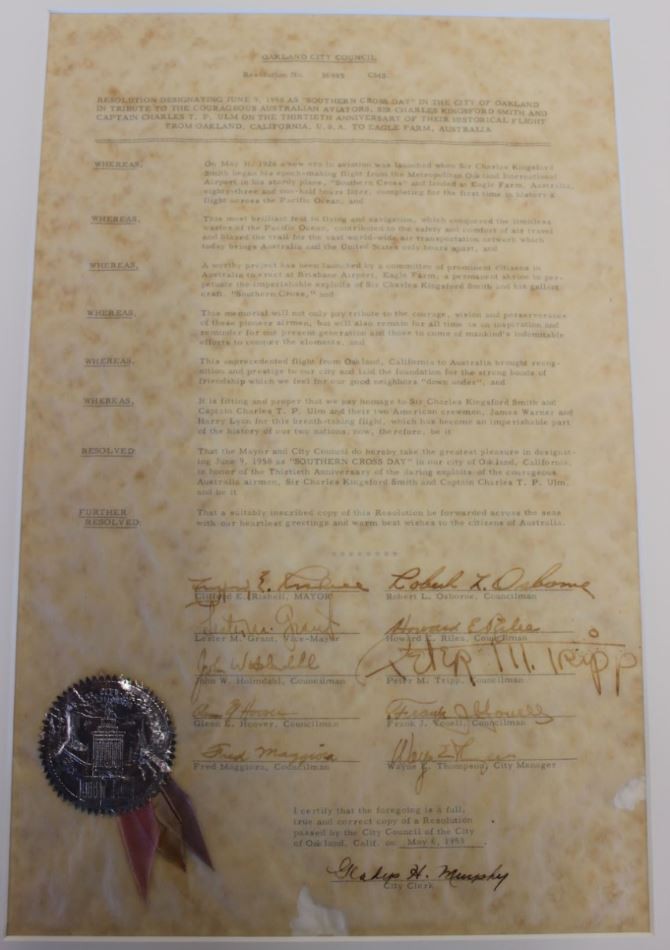 OAKLAND CITY COUNCIL
Resolution No. CMS
RESOLUTION DESIGNATING JUNE 9, 1958 AS "SOUTHERN CROSS DAY" IN THE CITY OF OAKLAND
IN TRIBUTE TO THE COURAGEOUS AUSTRALIAN AVIATORS, SIR CHARLES KINGSFORD SMITH AND
CAPTAIN CHARLES T. P. ULM ON THE THIRTIETH ANNIVERSARY OF THEIR HISTORICAL FLIGHT
FROM OAKLAND, CALIFORNIA, U. S. A. TO EAGLE FARM, AUSTRALIA
WHEREAS, On May 31, 1928 a new era in aviation was launched when Sir Charles Kingsford
Smith began his epoch-making flight from the Metropolitan Oakland International
Airport in his sturdy plane, "Southern Cross" and landed at Eagle Farm, Australia,
eighty-three and one-half hours later, completing for the first time in history a
flight across the Pacific Ocean, and
WHEREAS, This most brilliant feat in flying and navigation, which conquered the limitless
wastes of the Pacific Ocean, contributed to the safety and comfort of air travel
and blazed the trail for the vast world-wide air transportation network which
today brings Australia and the United States only hours apart, and
WHEREAS, A worthy project has been launched by a committee of prominent citizens in
Australia to erect at Brisbane Airport, Eagle Farm, a permanent shrine to per-
petuate the imperishable exploits of Sir Charles Kingsford Smith and his gallant
craft, "Southern Cross," and
WHEREAS, This memorial will not only pay tribute to the courage, vision and perseverance
of these pioneer airmen, but will also remain for all time as an inspiration and
reminder for our present generation and those to come of mankind's indomitable
efforts to conquer the elements, and
WHEREAS, This unprecedented flight from Oakland, California to Australia brought recog-
nition and prestige to our city and laid the foundation for the strong bonds of
friendship which we feel for our good neighbors "down under", and
WHEREAS, It is fitting and proper that we pay homage to Sir Charles Kingsford Smith and
Captain Charles T. P. Ulm and their two American crewmen, James Warner and
Harry Lyon for this breath-taking flight, which has become an imperishable part
of the history of our two nations; now, therefore, be it
RESOLVED: That the Mayor and City Council do hereby take the greatest pleasure in designat-
ing June 9, 1958 as "SOUTHERN CROSS DAY" in our city of Oakland, California,
in honor of the Thirtieth Anniversary of the daring exploits of the courageous
Australia airmen, Sir Charles Kingsford Smith and Captain Charles T. P. Ulm,
and be it
FURTHER RESOLVED: That a suitably inscribed copy of this Resolution be forwarded across the seas
with our heartiest greetings and warm best wishes to the citizens of Australia.
********
Clifford E. Rishell Robert L. Osborne
Clifford E. Rishell, MAYOR Robert L. Osborne, Councilman
Lester M. Grant Howard E. Rilea
Lester M. Grant, Vice-Mayor Howard E. Rilea, Councilman
John W. Holmdahl Peter M. Tripp
John W. Holmdahl, Councilman Peter M. Tripp, Councilman
Glenn E. Hoover Frank J. Youell
Glenn E. Hoover, Councilman Frank J. Youell, Councilman
Fred Maggiora Wayne E.
Fred Maggiora, Councilman Wayne E. Thompson, City Manager
I certify that the foregoing is a full,
true and correct copy of a Resolution
passed by the City Council of the City
of Oakland, Calif. on May 6, 1958
Gladys H. Murphy
City Clerk